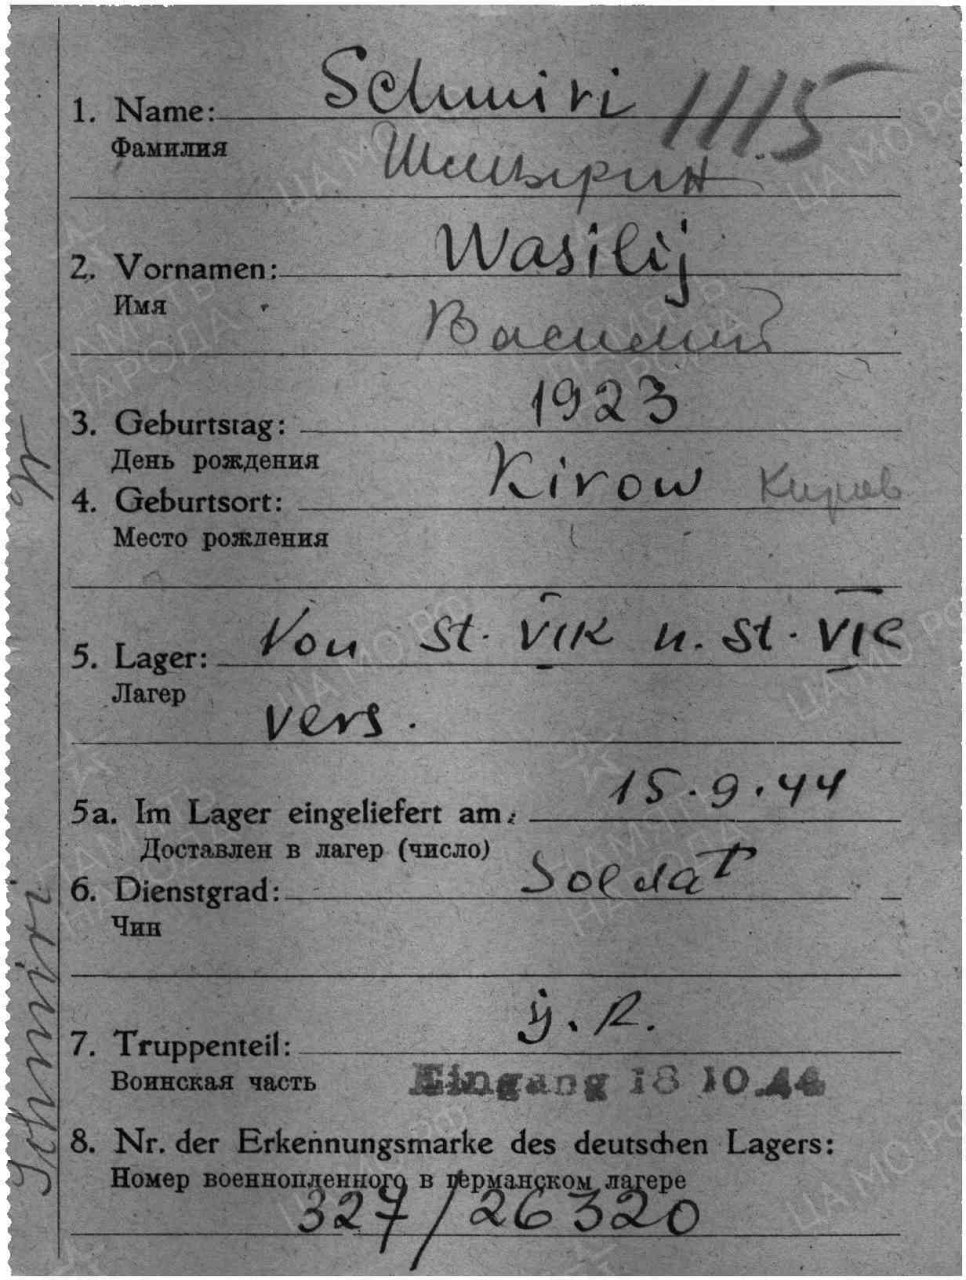 1. Name: Schmiri 1115
Фамилия Шмырин
2. Vornamen: Wasilij
Имя
Василий
3. Geburtstag: 1923
День рождения
4. Geburtsort: Kirow Киров
Место рождения
5. Lager: Von St. VIK n. St. VIC
Лагер
vers.
5a. Im Lager eingeliefert am: 15.9.44
Доставлен в лагер (число)
6. Dienstgrad: Soldat
Чин
7. Truppenteil: y. R.
Воинская часть Eingang 18 10.44
8. Nr. der Erkennungsmarke des deutschen Lagers:
Номер военнопленного в германском лагере
327/26320
Schmiri
ЦА МО РФ
ПАМЯТЬ НАРОДА